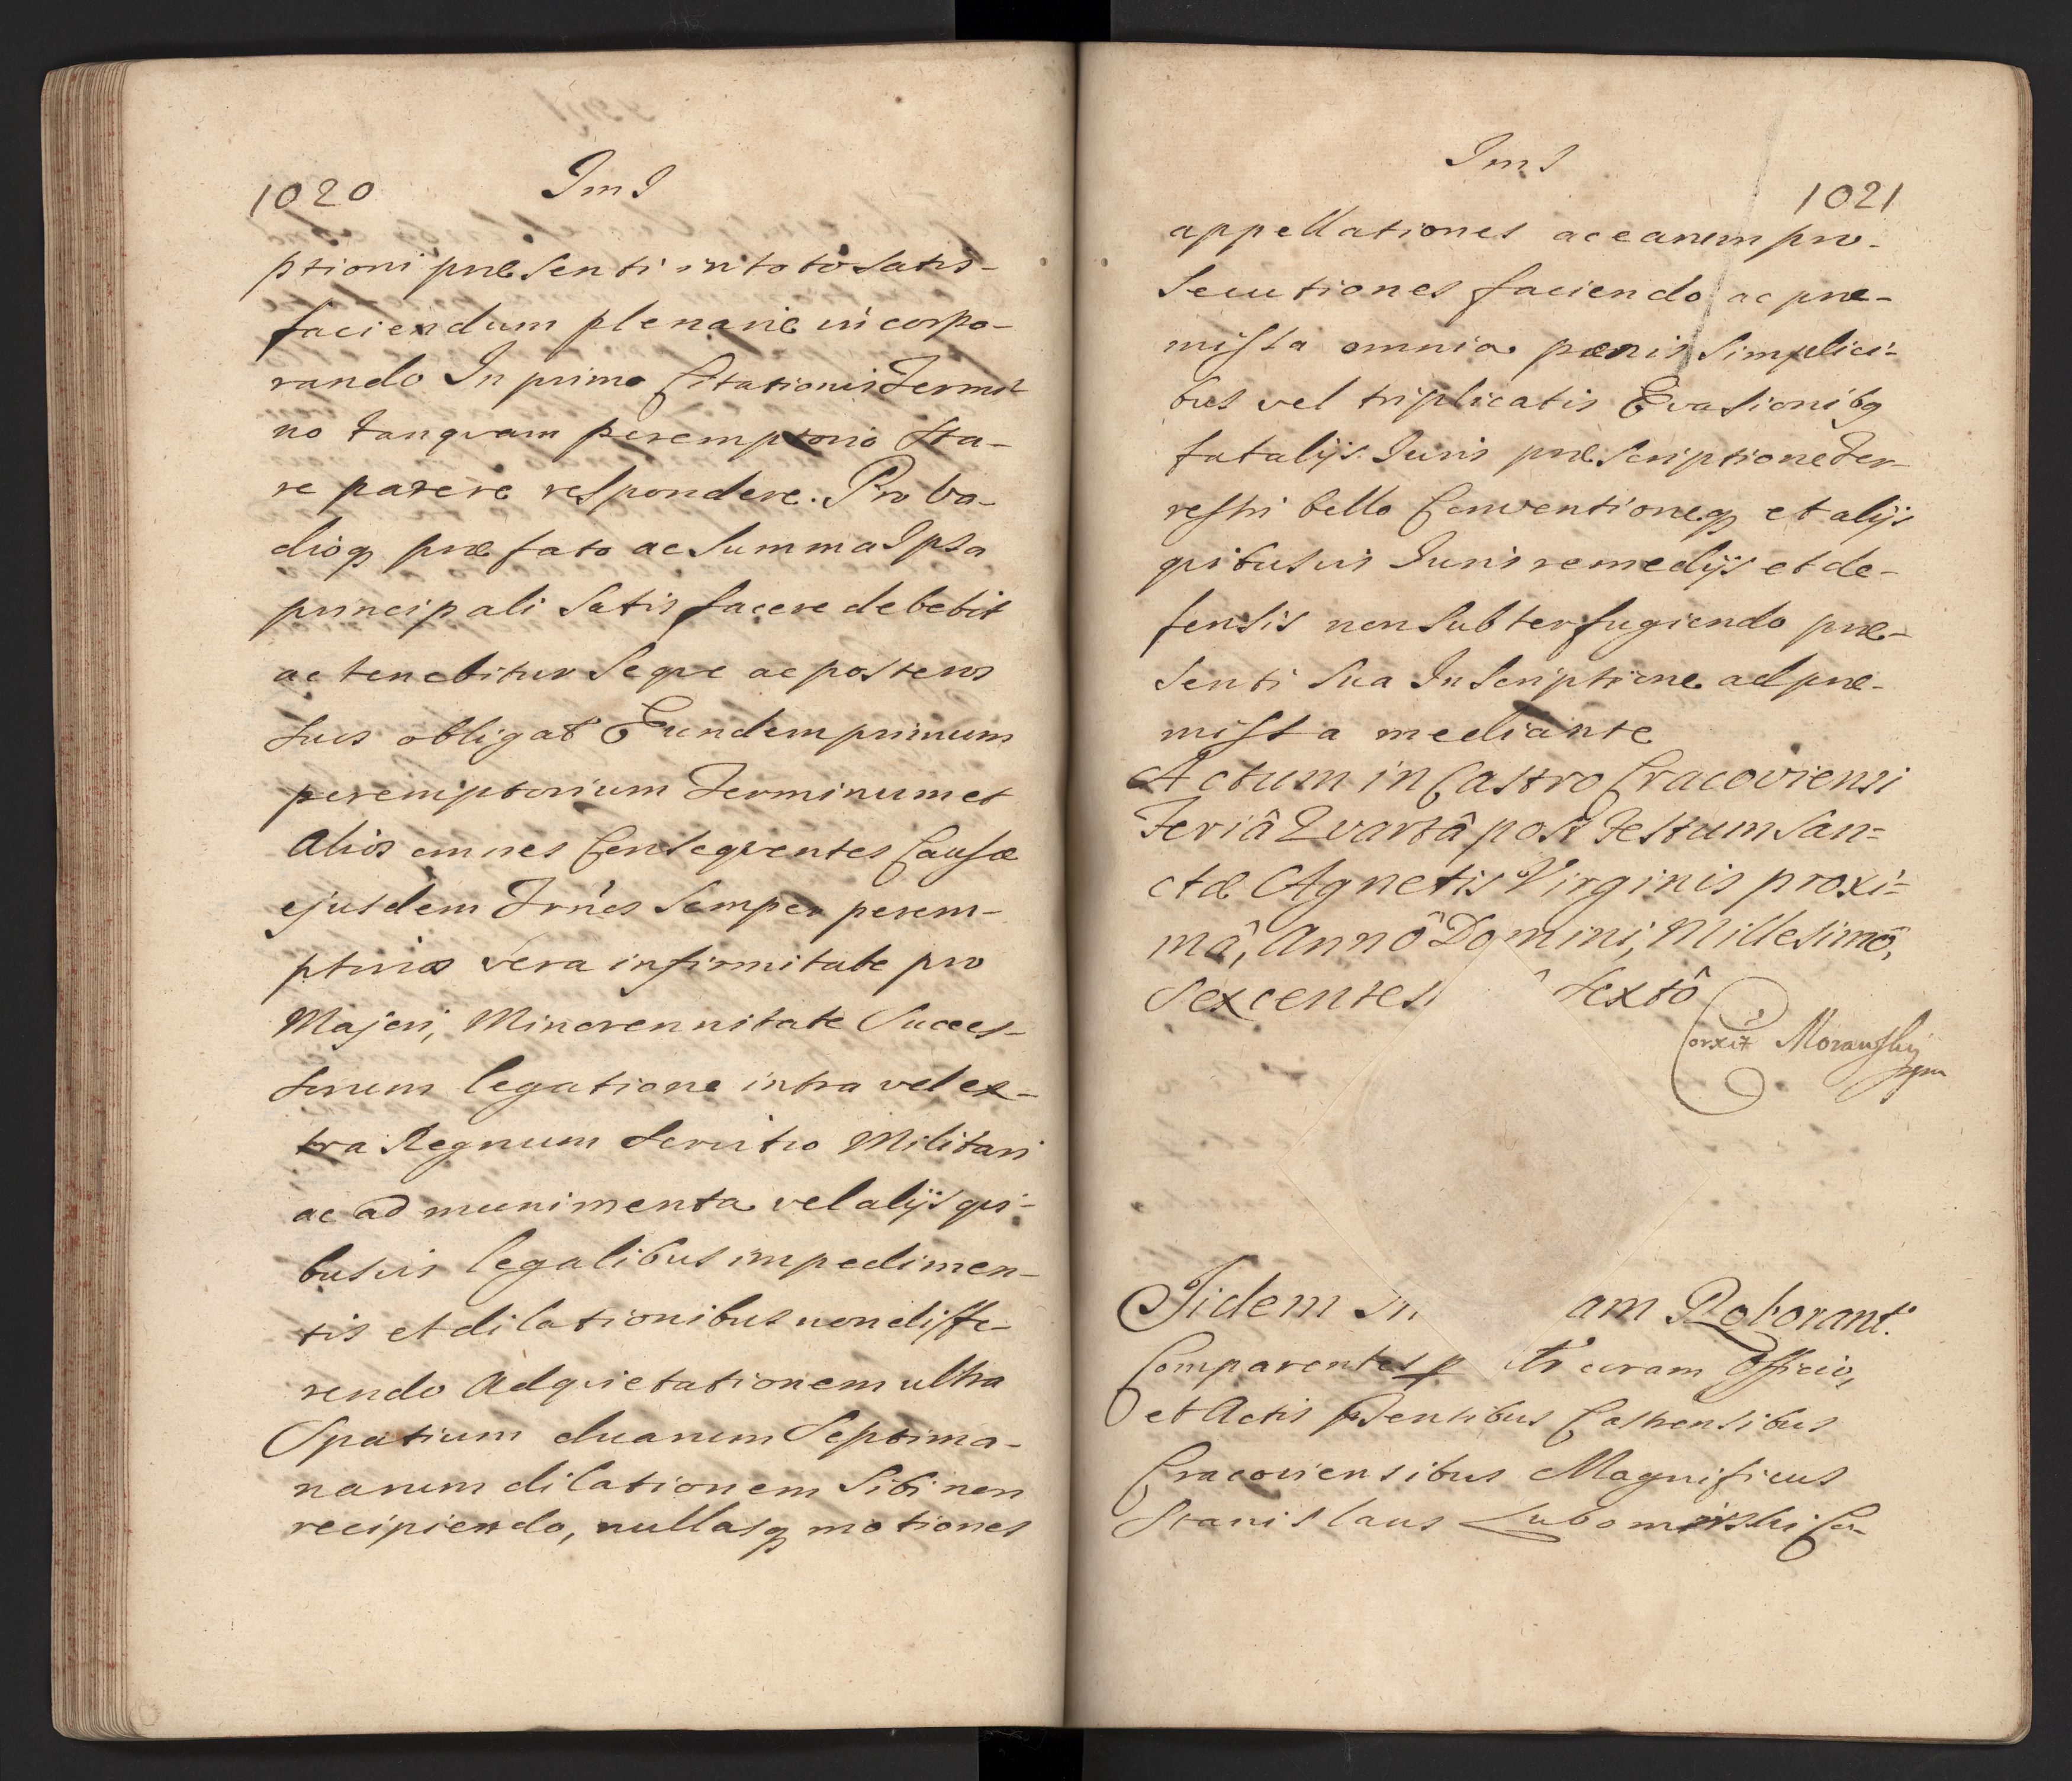 1020 Im I
ptioni præsenti in toto satis-
faciendum plenarie incorpo-
rando In primo Citationis Termi-
no tanqvam peremptorio sta-
re parere respondere. Pro Va-
dioq præfato ac Summa Ipsa
principali satisfacere debebit
ac tenebitur seqve ac posteros
suos obligat Eundem primum
peremptorium Terminum et
Alios omnes Conseqventes Causæ
ejusdem Trños semper perem-
ptorios vera infirmitate pro
Majori, Minorennitate Succes-
sorum legatione intra vel ex-
tra Regnum servitio Militari
ac ad munimenta vel alijs qvi-
busvis legalibus impedimen-
tis et dilationibus non diffe-
rendo Adqvietationem ultra
Spatium duarum Septima-
narum dilationem sibi non
recipiendo, nullasq motiones
Im I
1021
appellationes ac earum pro-
secutiones faciendo ac præ-
missa omnia pænis simplici-
bus vel triplicatis Evasionibq
fatalijs Juris præscriptione Ter-
restri bello Conventioneq et alijs
qvibusvis Juris remedijs et de-
fensis non subterfugiendo præ-
senti sua Inscriptione ad præ-
missa mediante
Actum in Castro Cracoviensi
Feriâ Qvartâ post Festum San-
ctæ Agnetis Virginis proxi-
mâ, Annô Domini, Millesimô,
Sexcentes Sextô
Corxit Morawskj
mpa
Fidem In am Roborant.
Comparentes p tr coram Officio,
et Actis psentibus Castrensibus
Cracoviensibus Magnificus
Stanislaus Lubomirski Co-